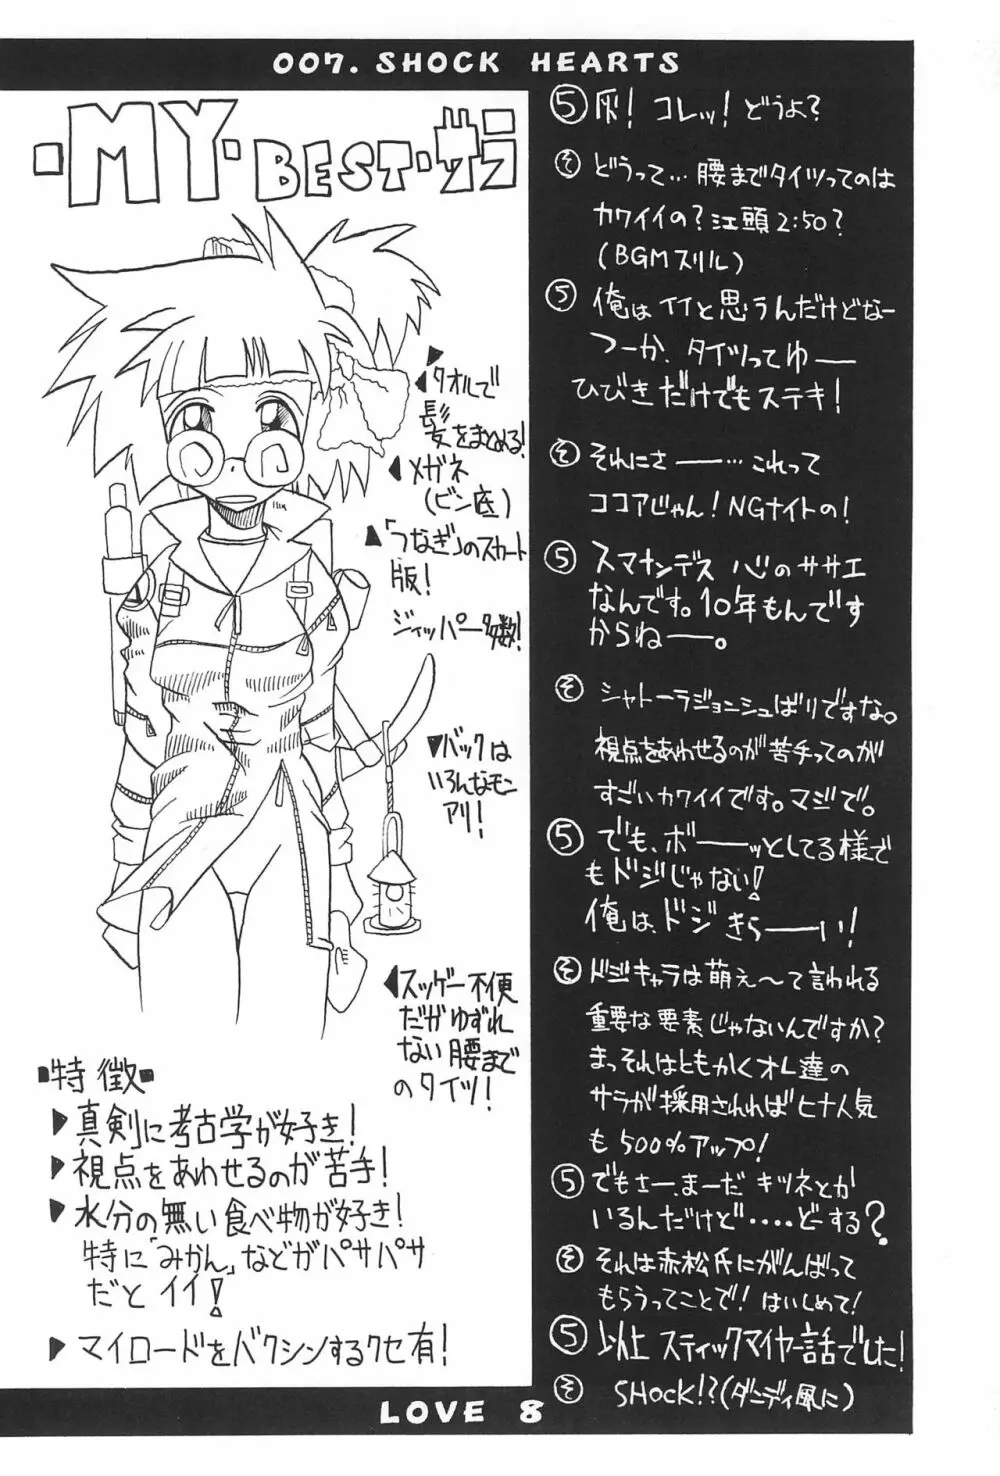 007. SHOCK HEARTS
・MY・BEST・サラ
タオルで
髪をまとめる!
メガネ
(ビン底)
「つなぎ」のスカート
版!
ジィッパー多数!
バックは
いろんなモン
アリ!
スッゲー不便
だがゆずれ
ない腰まで
のタイツ!
・特徴・
真剣に考古学が好き!
視点をあわせるのが苦手!
水分の無い食べ物が好き!
特に「みかん」などがパサパサ
だとイイ!
マイロードをバクシンするクセ有!
⑤ 灰! コレッ! どうよ?
そ どうって…腰までタイツってのは
カワイイの?江頭2:50?
(BGMスリル)
⑤ 俺はイイと思うんだけどなー
つーか、タイツってゆー
ひびきだけでもステキ!
そ それにさー…これって
ココアじゃん!NGナイトの!
⑤ スマナンデス 心のササエ
なんです。10年もんです
からねー。
そ シャトーラジョニシュばりですな。
視点をあわせるのが苦手ってのが
すごいカワイイです。マジで。
⑤ でも、ボーッとしてる様で
もドジじゃない!
俺は、ドジきらーい!
そ ドジキャラは萌え～て言われる
重要な要素じゃないんですか?
まっそれはともかくオレ達の
サラが採用されればヒナ人気
も500%アップ!
⑤ でもさー、まーだ キツネとか
いるんだけど・・・・どーする?
そ それは赤松氏にがんばって
もらうってことで! はいしめて!
⑤ 以上 スティックマイヤー話でした!
そ SHOCK!?(ダンディ風に)
LOVE 8